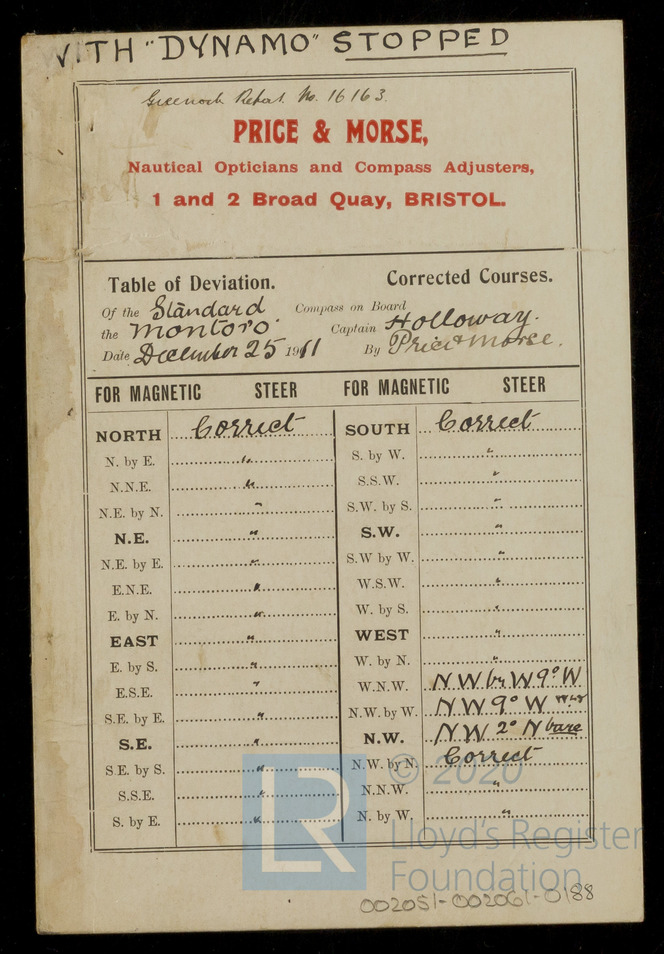 WITH "DYNAMO" STOPPED
Greenock Report No. 16163.
PRICE & MORSE,
Nautical Opticians and Compass Adjusters,
1 and 2 Broad Quay, BRISTOL.
Table of Deviation. Corrected Courses.
Of the Standard Compass on Board
the Montoro. Captain Holloway.
Date December 25 1911 By Price & Morse.
FOR MAGNETIC STEER FOR MAGNETIC STEER
NORTH Correct SOUTH Correct
N. by E. " S. by W. "
N.N.E. " S.S.W. "
N.E. by N. " S.W. by S. "
N.E. " S.W. "
N.E. by E. " S.W by W. "
E.N.E. " W.S.W. "
E. by N. " W. by S. "
EAST " WEST "
E. by S. " W. by N. "
E.S.E. " W.N.W. NW by W 9° W
S.E. by E. " N.W. by W. NW 9° W
S.E. " N.W. NW 2° N bare
S.E. by S. " N.W. by N. Correct
S.S.E. " N.N.W. "
S. by E. " N. by W. "
LR © 2020
Lloyd's Register
Foundation
002051-002061-0188